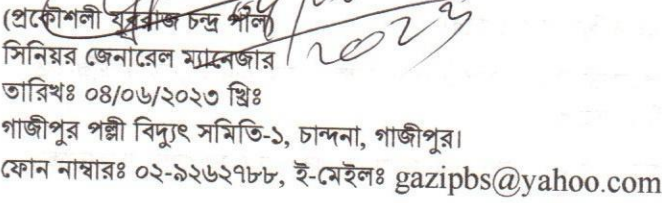 (প্রকৌশলী যুবরাজ চন্দ্র পাল)
2023
সিনিয়র জেনারেল ম্যানেজার
তারিখঃ ০৪/০৬/২০২৩ খ্রিঃ
গাজীপুর পল্লী বিদ্যুৎ সমিতি-১, চান্দনা, গাজীপুর।
ফোন নাম্বারঃ ০২-৯২৬২৭৮৮, ই-মেইলঃ gazipbs@yahoo.com